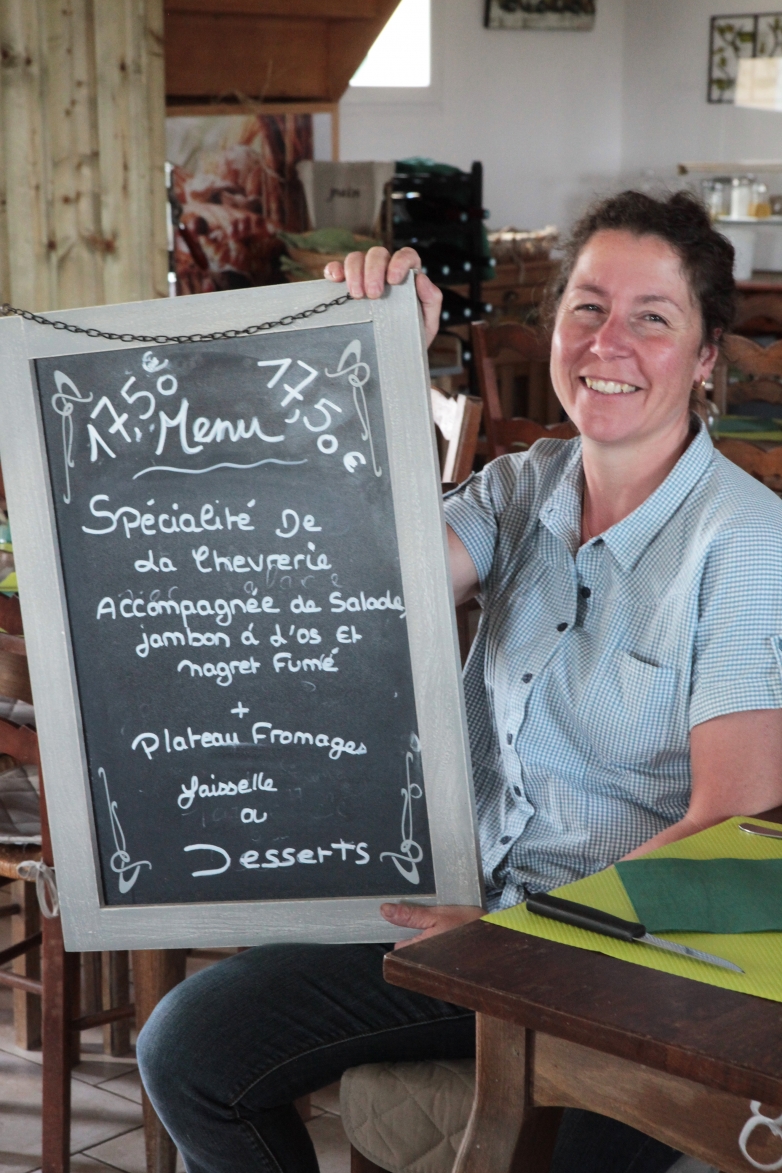 17,50€ Menu 17,50€
Spécialité De
La Chevrerie
Accompagnée de Salade,
jambon à l'os Et
magret Fumé
+
Plateau Fromages
faisselle
ou
Desserts
pain